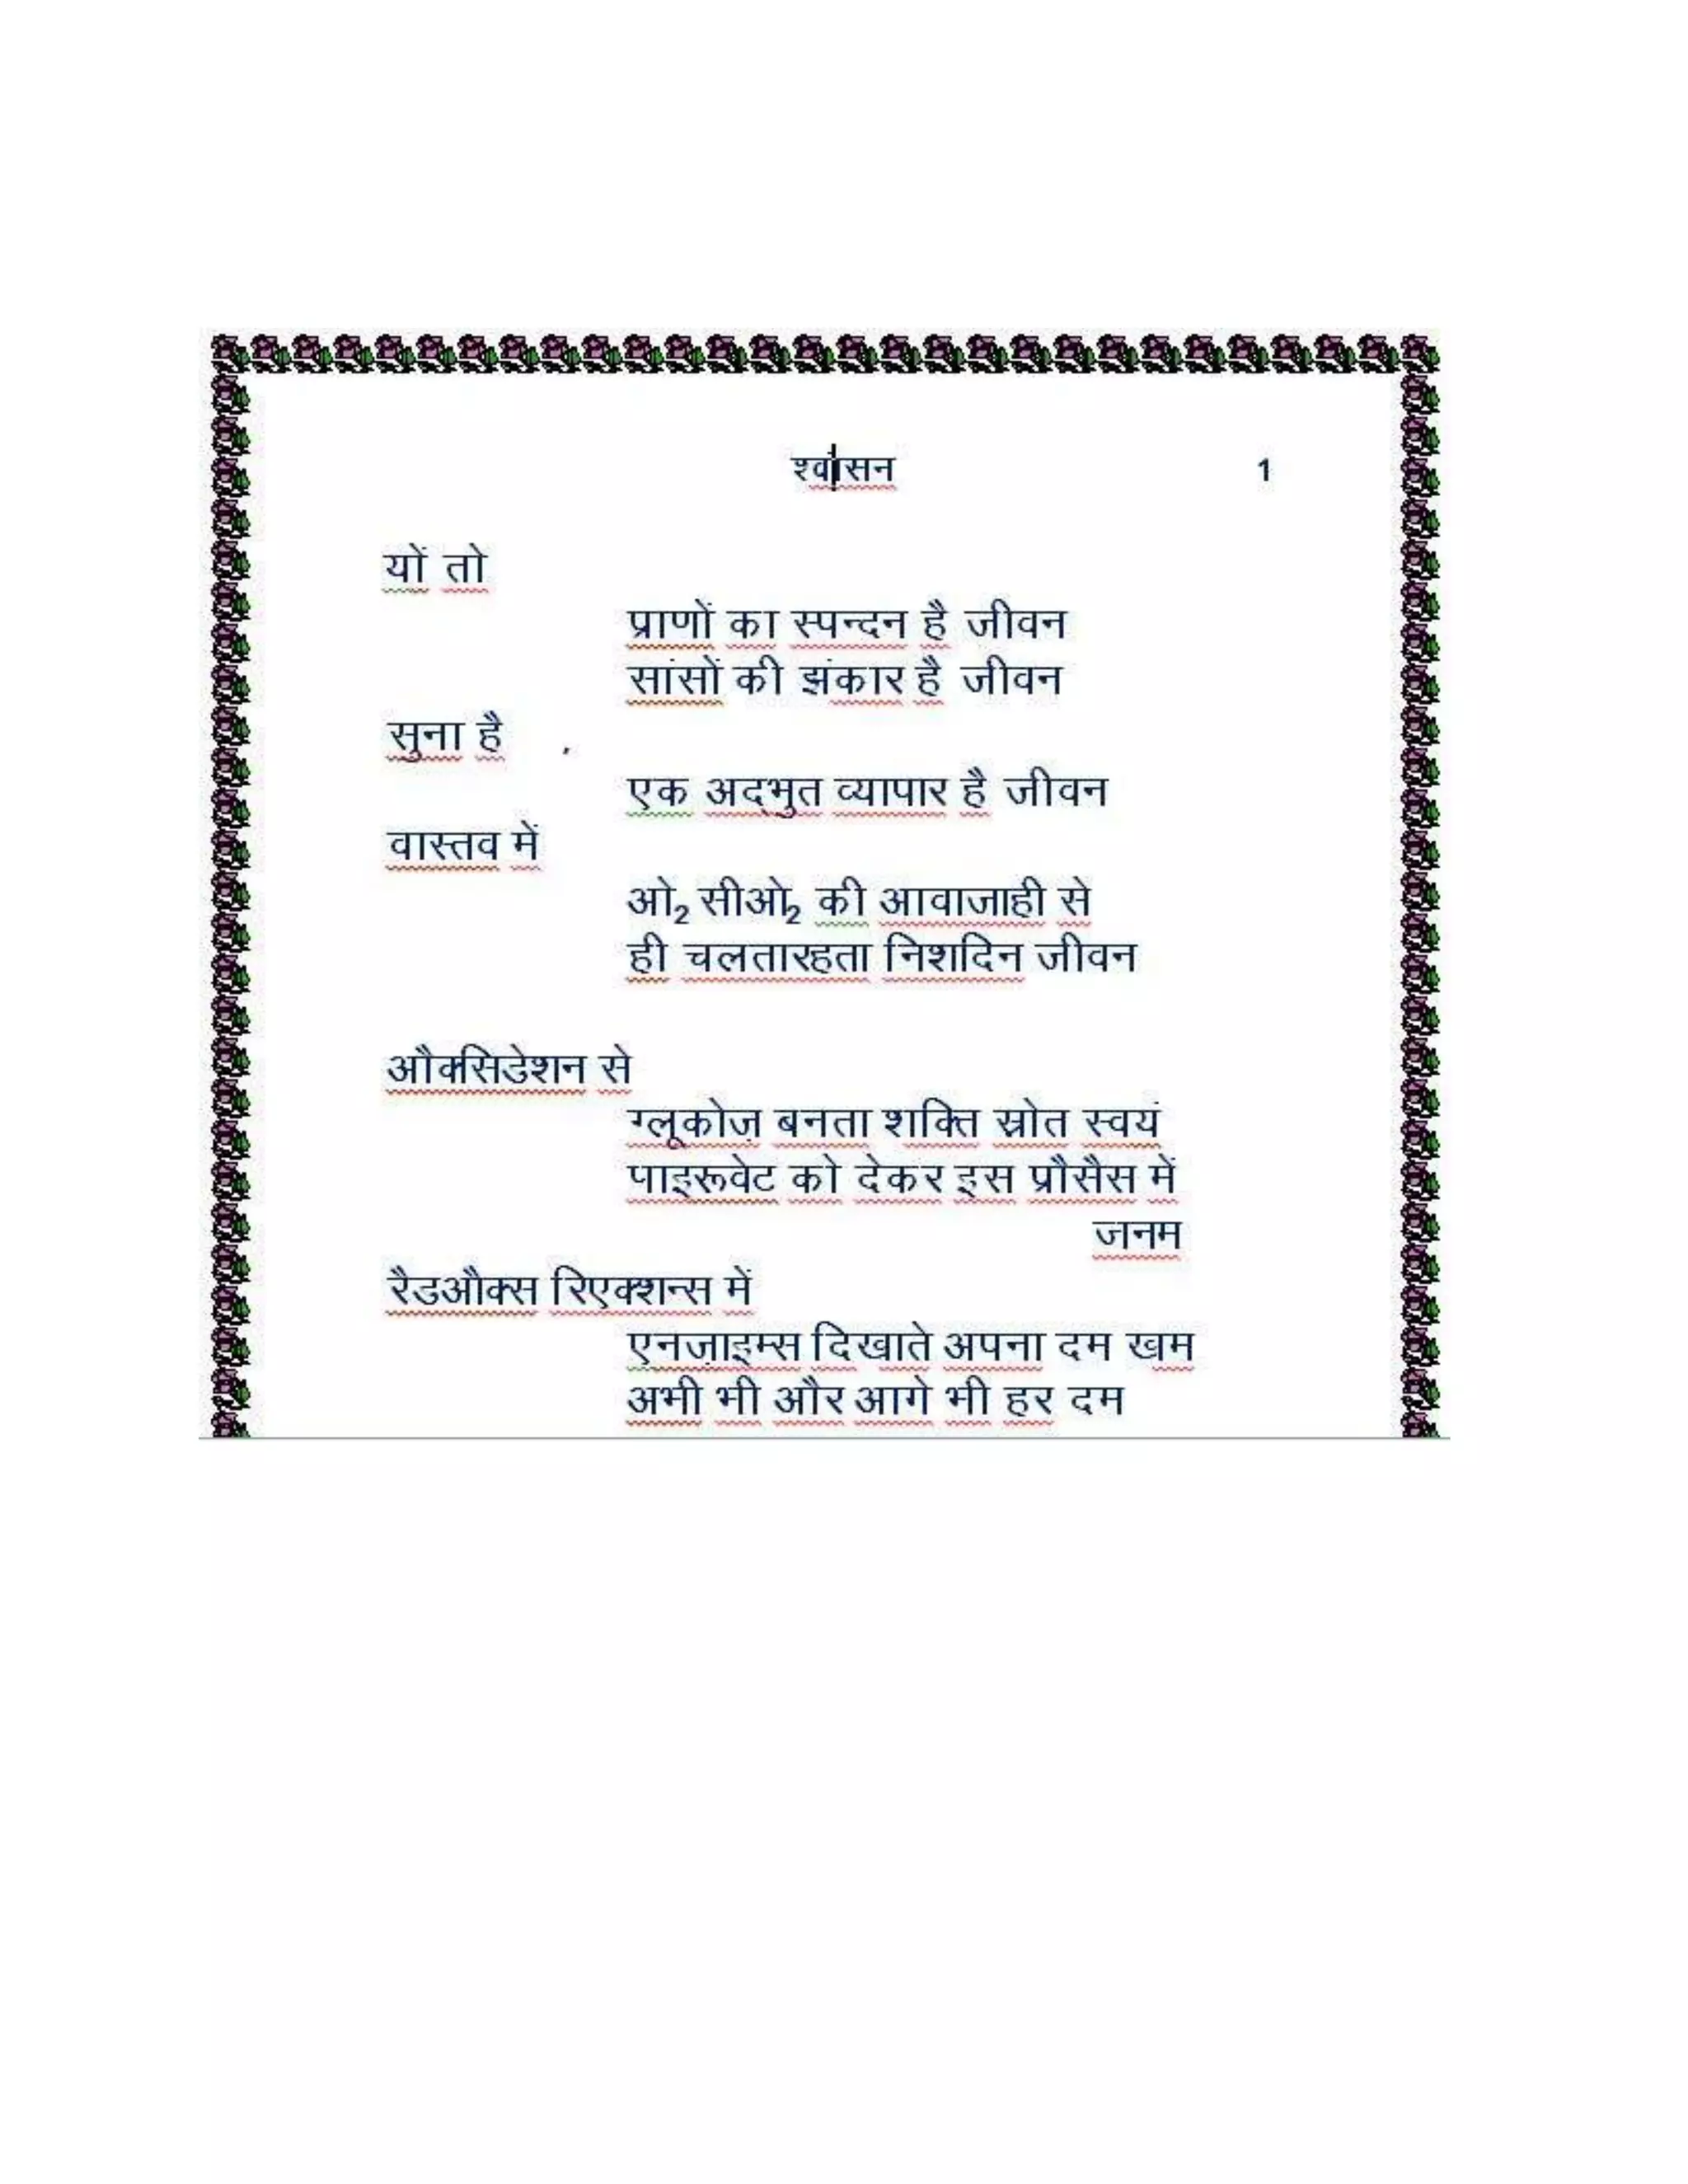 श्वासन 1
यों तो
प्राणों का स्पन्दन है जीवन
सांसों की झंकार है जीवन
सुना है ,
एक अद्भुत व्यापार है जीवन
वास्तव में
ओ₂ सीओ₂ की आवाजाही से
ही चलतारहता निशदिन जीवन
औक्सिडेशन से
ग्लूकोज़ बनता शक्ति स्रोत स्वयं
पाइरूवेट को देकर इस प्रौसैस में
जनम
रैडऔक्स रिएक्शन्स में
एनज़ाइम्स दिखाते अपना दम खम
अभी भी और आगे भी हर दम